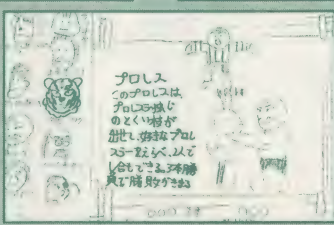 プロレス
このプロレスは、
プロレスラー独じ
のとくい技が
出せて、好きなプロレ
スラーをえらべ、2人で
し合もできる。3本勝
負で勝敗がきまる